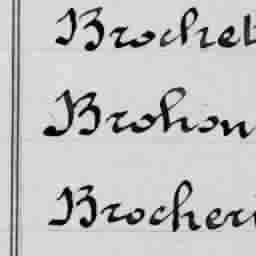 Brochet
Brohon
Brocheri